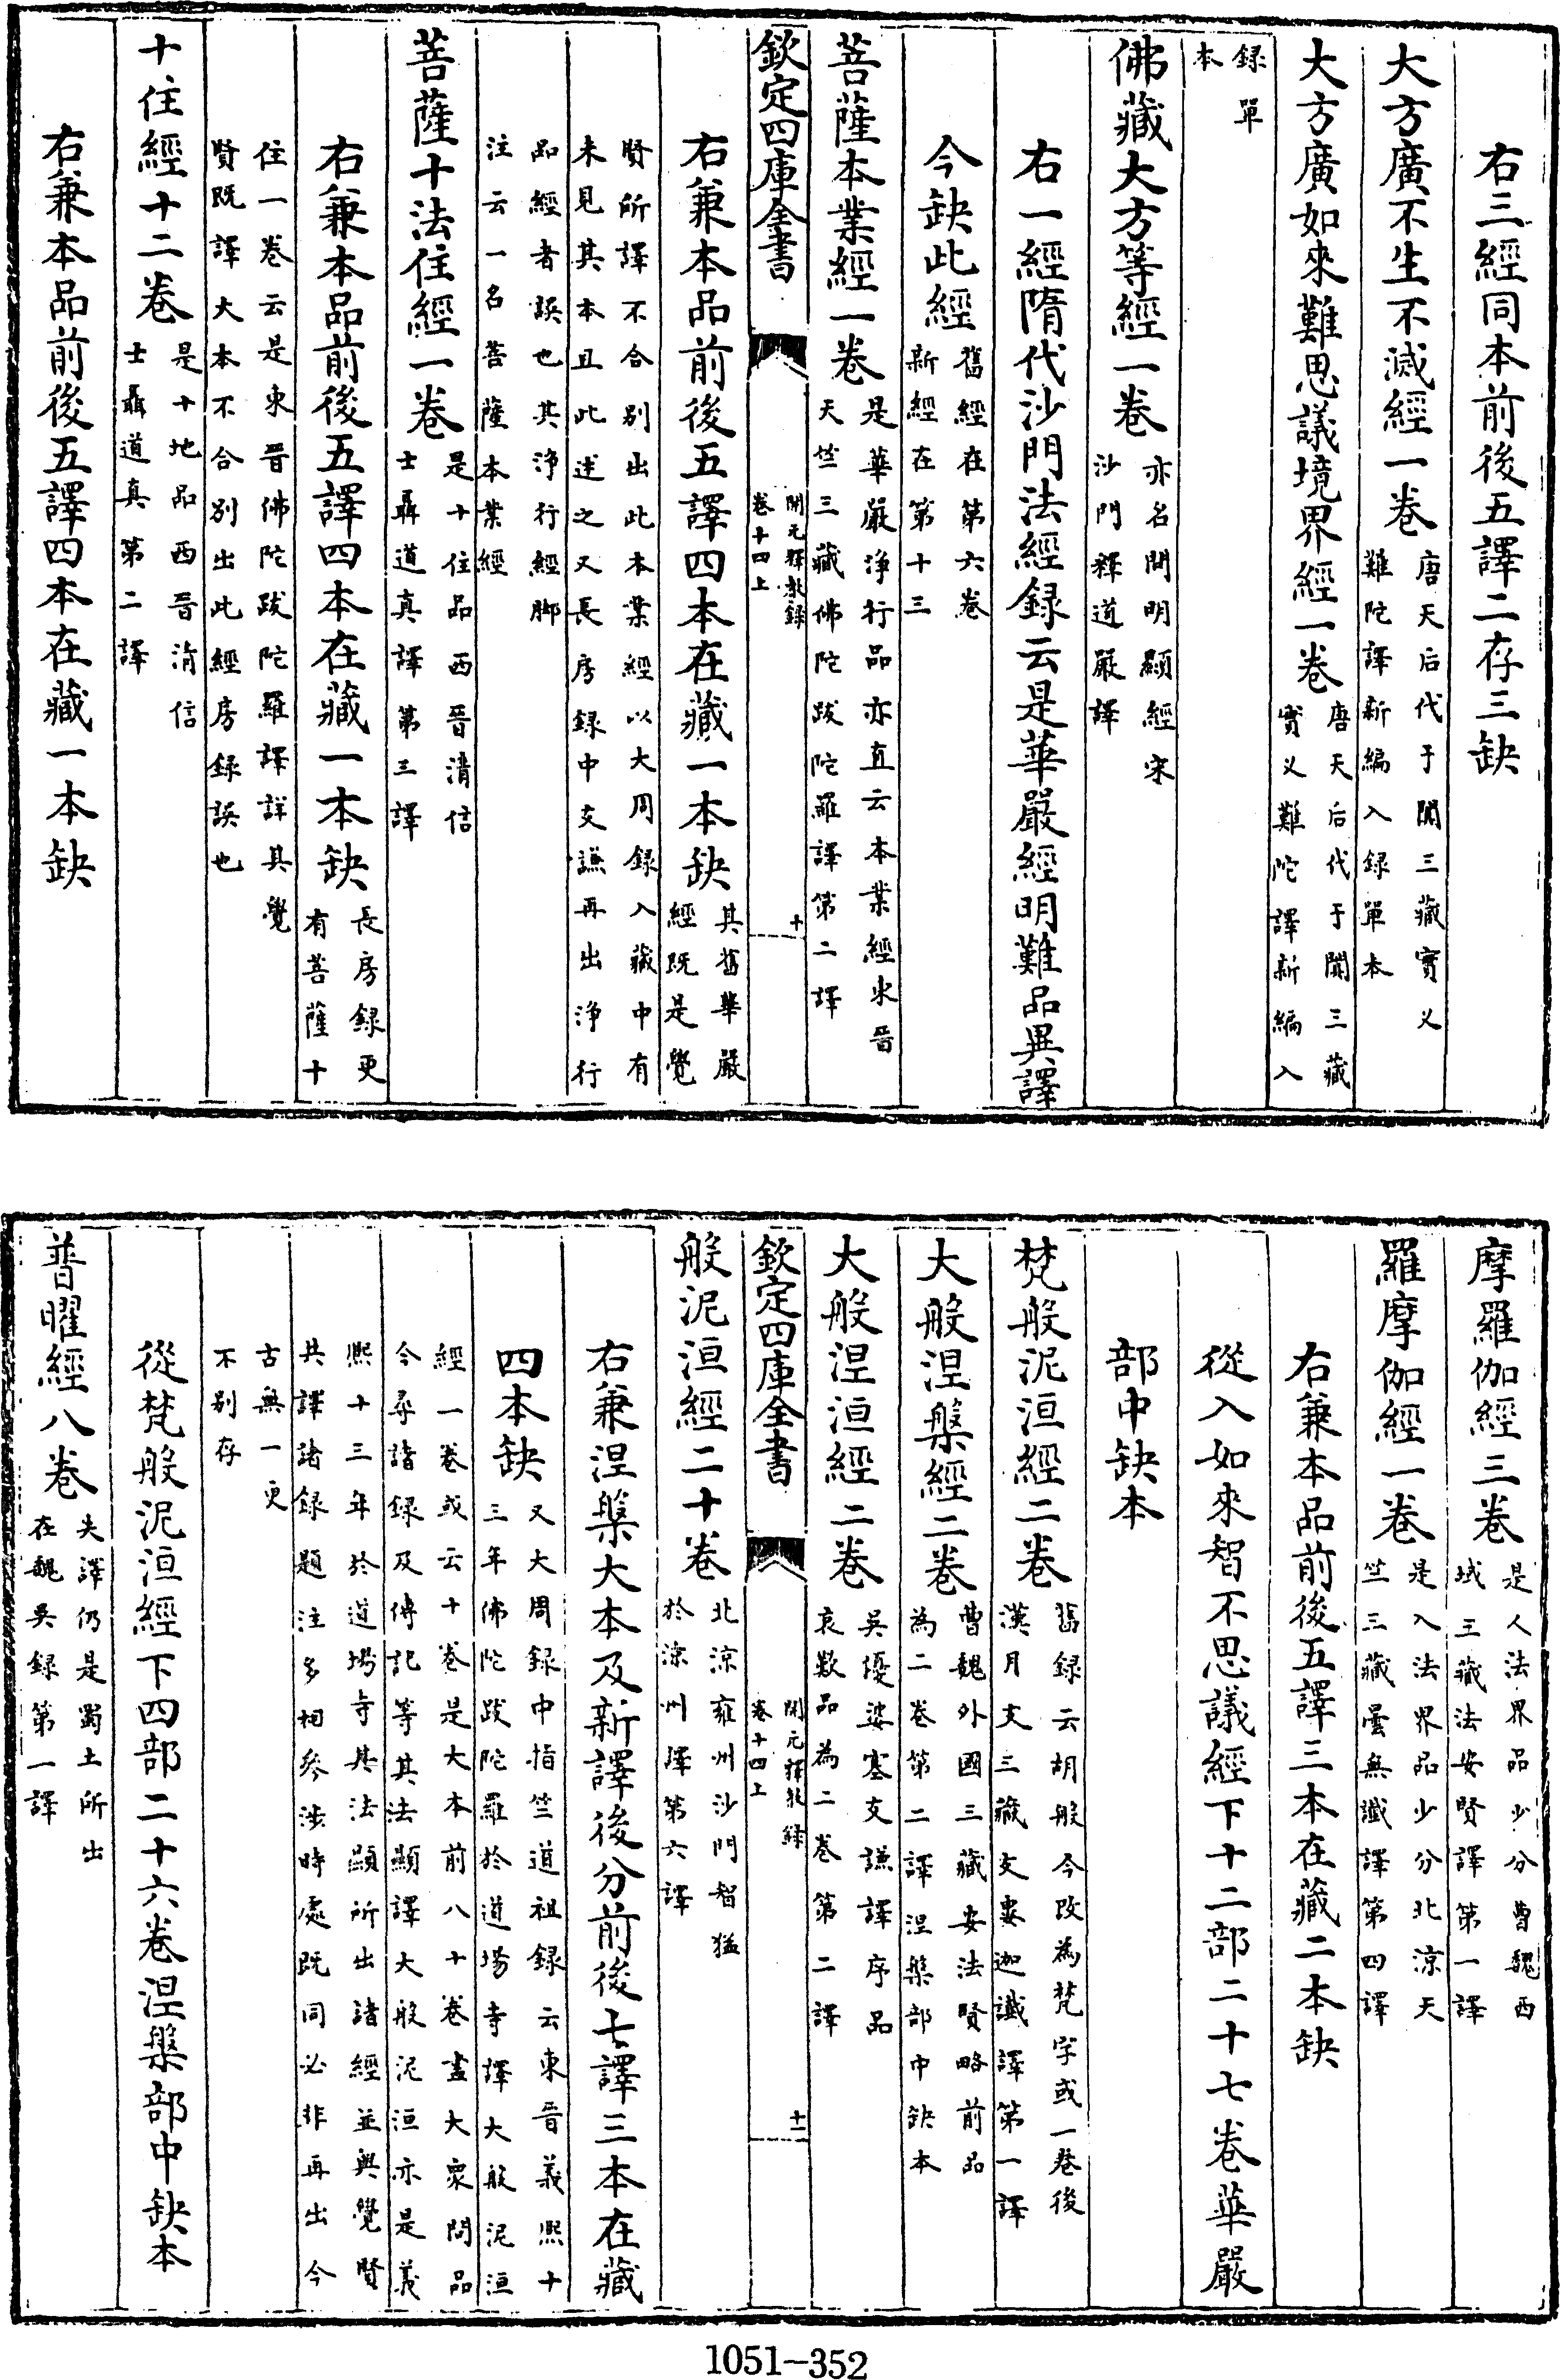 右三經同本前後五譯二存三缺
大方廣不生不滅經一卷唐天后代于闐三藏實义難陀譯新編入録單本
大方廣如來難思議境界經一卷唐天后代于闐三藏實义難陀譯新編入
録單本
佛藏大方等經一卷亦名問明顯經宋沙門釋道嚴譯
右一經隋代沙門法經録云是華嚴經明難品異譯
今缺此經舊經在第六卷新經在第十三
菩薩本業經一卷是華嚴淨行品亦直云本業經東晉天竺三藏佛陀跋陀羅譯第二譯
欽定四庫全書 開元釋教録卷十四上 十
右兼本品前後五譯四本在藏一本缺其舊華嚴經既是覺
賢所譯不合别出此本業經以大周録入藏中有未見其本且此述之又長房録中支謙再出淨行
品經者誤也其淨行經脚注云一名菩薩本業經
菩薩十法住經一卷是十住品西晉清信士聶道真譯第三譯
右兼本品前後五譯四本在藏一本缺長房録更有菩薩十
住一卷云是東晉佛陀跋陀羅譯詳其覺賢既譯大本不合别出此經房録誤也
十住經十二卷是十地品西晉清信士聶道真第二譯
右兼本品前後五譯四本在藏一本缺
摩羅伽經三卷是人法界品少分曹魏西域三藏法安賢譯第一譯
羅摩伽經一卷是入法界品少分北涼天竺三藏曇無讖譯第四譯
右兼本品前後五譯三本在藏二本缺
從入如來智不思議經下十二部二十七卷華嚴
部中缺本
梵般泥洹經二卷舊録云胡般今改為梵字或一卷後漢月支三藏支婁迦讖譯第一譯
大般涅槃經二卷曹魏外國三藏安法賢略前品為二卷第二譯涅槃部中缺本
大般涅洹經二卷吴優婆塞支謙譯序品哀歎品為二卷第二譯
欽定四庫全書 開元釋教録卷十四上 十一
般泥洹經二十卷北涼雍州沙門智猛於涼州譯第六譯
右兼涅槃大本及新譯後分前後七譯三本在藏
四本缺又大周録中指竺道祖録云東晉義熙十三年佛陀跋陀羅於道場寺譯大般泥洹
經一卷或云十卷是大本前八十卷盡大衆問品今尋諸録及傳記等其法顯譯大般泥洹亦是義
熙十三年於道場寺其法顯所出諸經並與覺賢共譯諸録題注多相參涉時處既同必非再出今
古無一更不别存
從梵般泥洹經下四部二十六卷涅槃部中缺本
普曜經八卷失譯仍是蜀土所出在魏吴録第一譯
1051-352